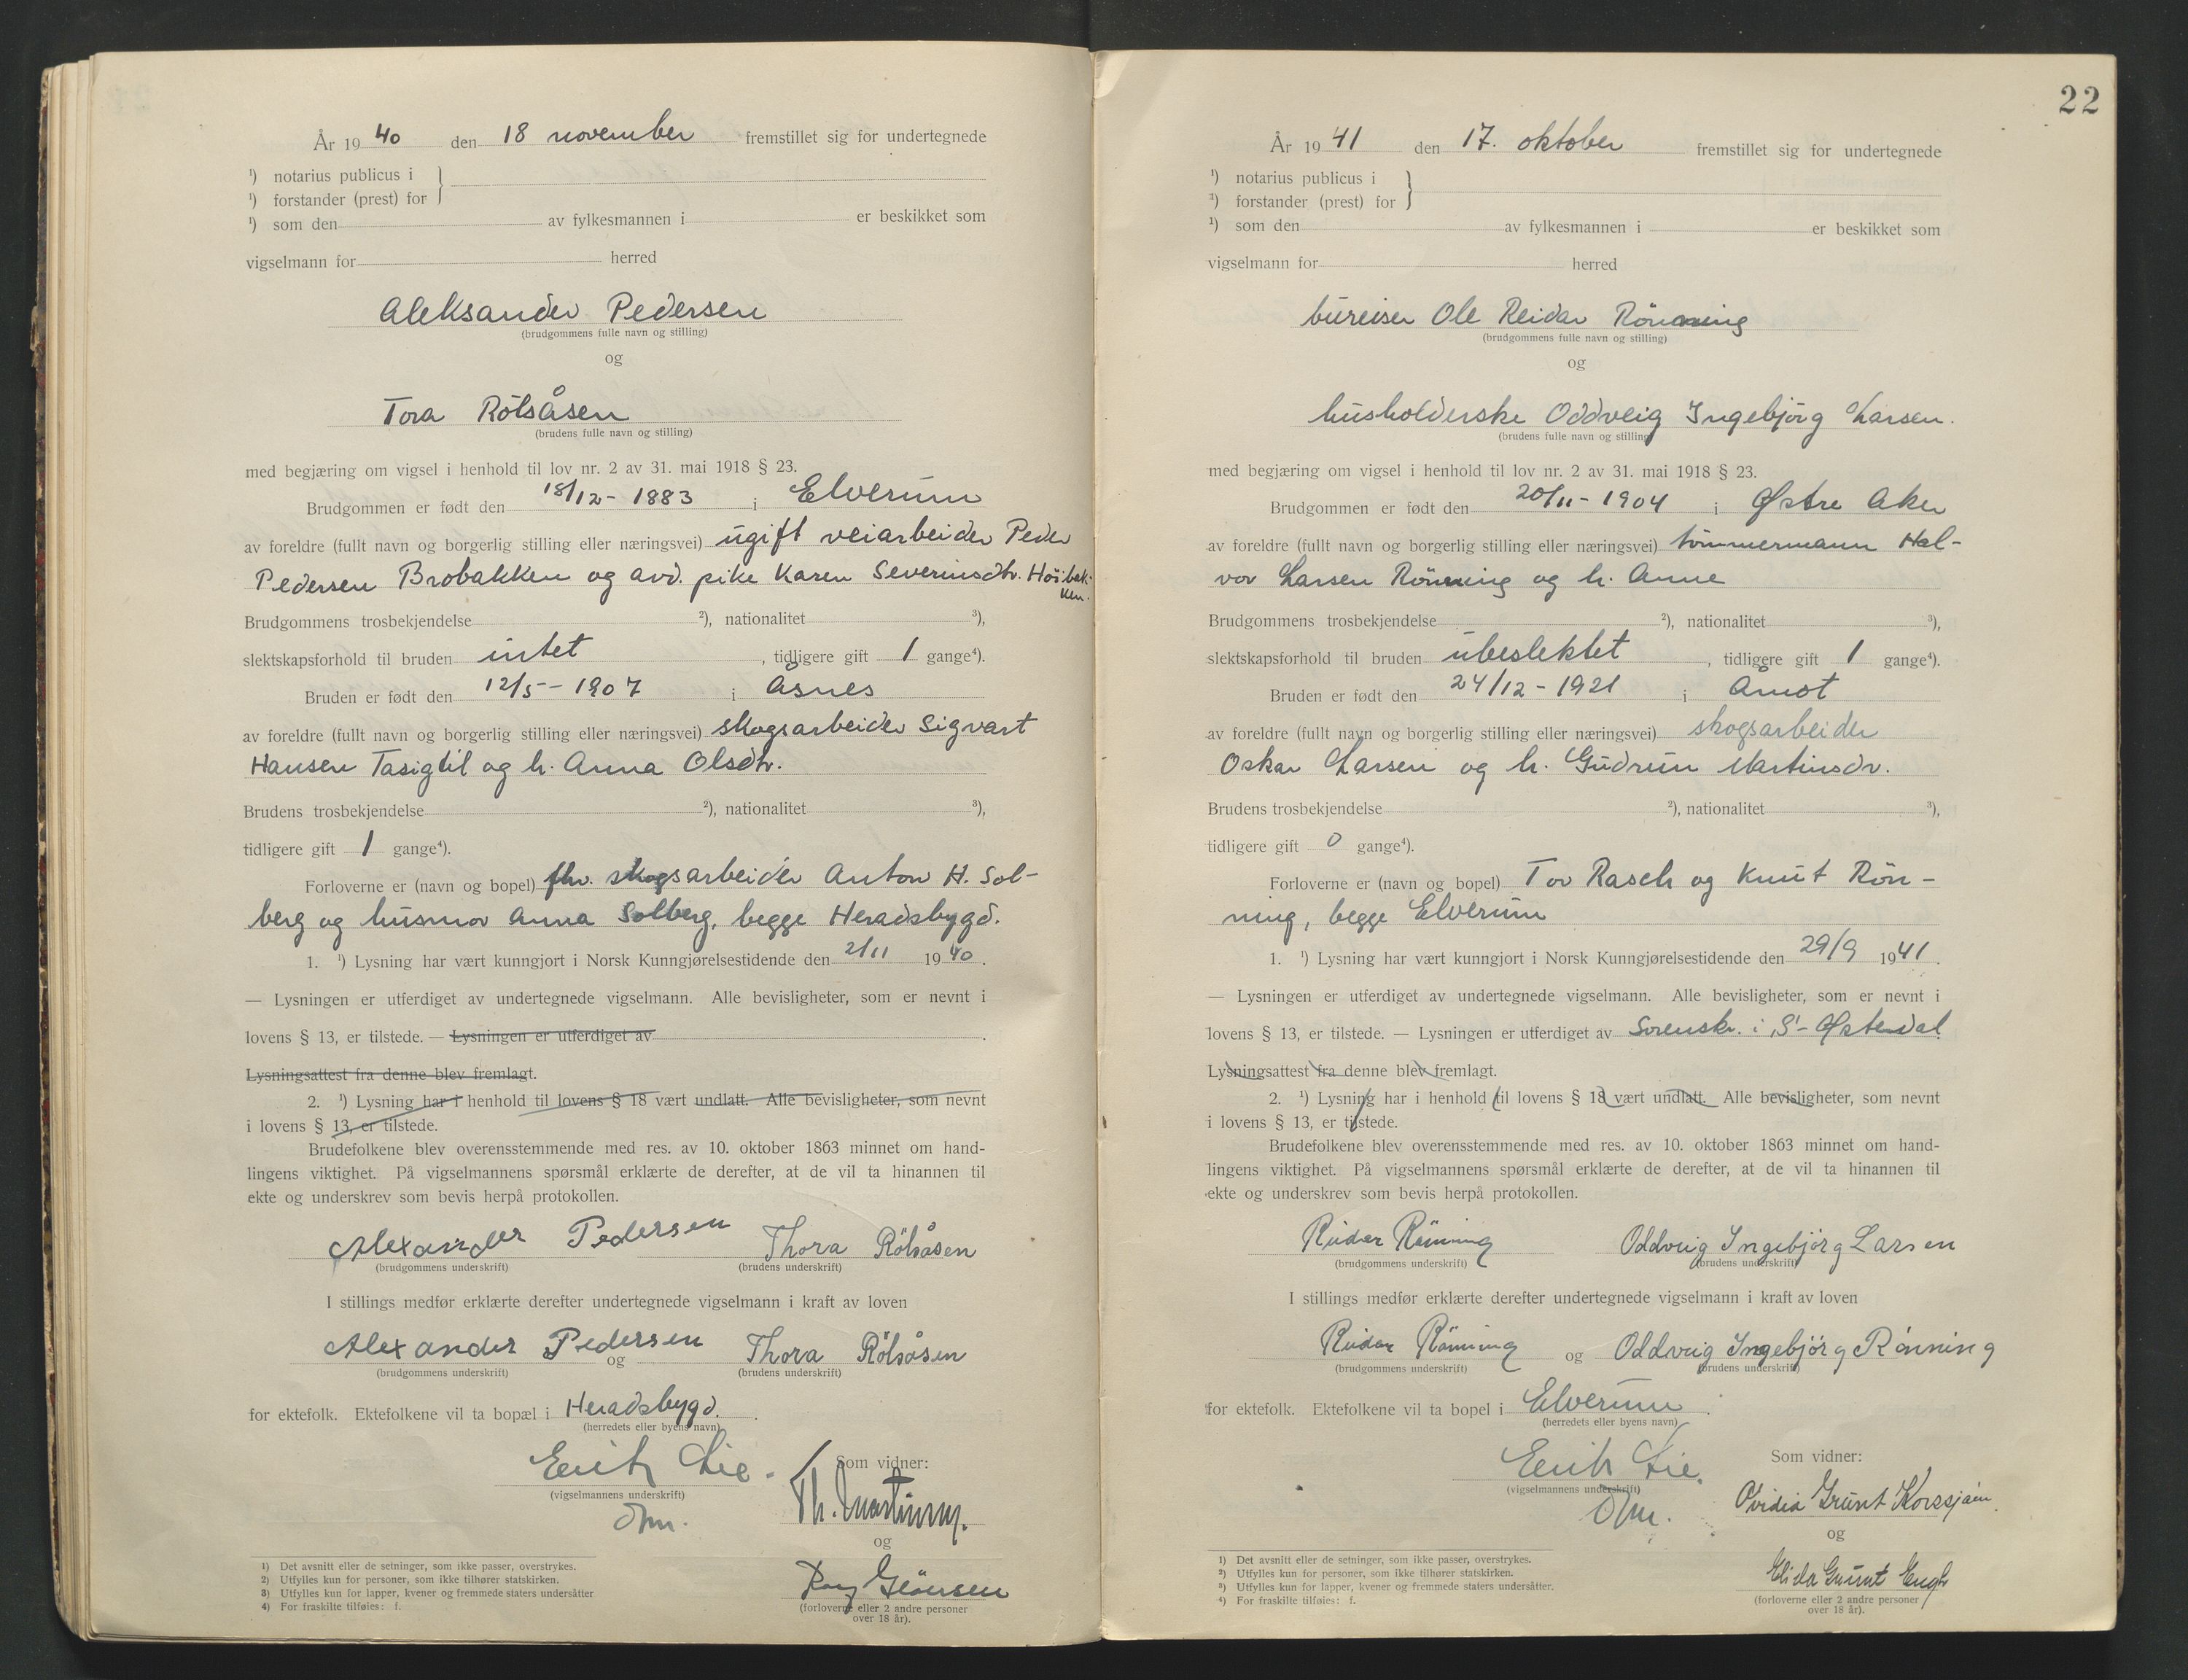 År 19 40 den 18 november fremstillet sig for undertegnede
¹) notarius publicus i
¹) forstander (prest) for
¹) som den av fylkesmannen i er beskikket som
vigselmann for herred
Aleksander Pedersen
(brudgommens fulle navn og stilling)
og
Tora Rölsåsen
(brudens fulle navn og stilling)
med begjæring om vigsel i henhold til lov nr. 2 av 31. mai 1918 § 23.
Brudgommen er født den 18/12 - 1883 i Elverum
av foreldre (fullt navn og borgerlig stilling eller næringsvei) ugift veiarbeider Peder
Pedersen Brobakken og avd. pike Karen Severinsdtr. Höibak-
ken.
Brudgommens trosbekjendelse ²), nationalitet ³),
slektskapsforhold til bruden intet, tidligere gift 1 gange⁴).
Bruden er født den 12/5 - 1907 i Åsnes
av foreldre (fullt navn og borgerlig stilling eller næringsvei) skogsarbeider Sigvart
Hansen Tasigtil og h. Anna Olsdtr.
Brudens trosbekjendelse ²), nationalitet ³),
tidligere gift 1 gange⁴).
Forloverne er (navn og bopel) fhv. skogsarbeider Anton H. Sol-
berg og husmor Anna Solberg, begge Heradsbygd.
1. ¹) Lysning har vært kunngjort i Norsk Kunngjørelsestidende den 2/11 1940.
— Lysningen er utferdiget av undertegnede vigselmann. Alle bevisligheter, som er nevnt i
lovens § 13, er tilstede. — Lysningen er utferdiget av
Lysningsattest fra denne blev fremlagt.
2. ¹) Lysning har i henhold til lovens § 18 vært undlatt. Alle bevisligheter, som nevnt
i lovens § 13, er tilstede.
Brudefolkene blev overensstemmende med res. av 10. oktober 1863 minnet om hand-
lingens viktighet. På vigselmannens spørsmål erklærte de derefter, at de vil ta hinannen til
ekte og underskrev som bevis herpå protokollen.
Alexander Pedersen Thora Rölsåsen
(brudgommens underskrift) (brudens underskrift)
I stillings medfør erklærte derefter undertegnede vigselmann i kraft av loven
Alexander Pedersen og Thora Rölsåsen
(brudgommens underskrift) (brudens underskrift)
for ektefolk. Ektefolkene vil ta bopæl i Heradsbygd.
(herredets eller byens navn)
Erik Lie. Som vidner:
(vigselmannens underskrift)
Th.
og
(forloverne eller 2 andre personer
over 18 år).
1) Det avsnitt eller de setninger, som ikke passer, overstrykes.
2) Utfylles kun for personer, som ikke tilhører statskirken.
3) Utfylles kun for lapper, kvener og fremmede staters undersåtter
4) For fraskilte tilføies: f.
22
År 19 41 den 17. oktober fremstillet sig for undertegnede
¹) notarius publicus i
¹) forstander (prest) for
¹) som den av fylkesmannen i er beskikket som
vigselmann for herred
bureiser Ole Reidar Rönning
(brudgommens fulle navn og stilling)
og
husholderske Oddveig Ingebjörg Larsen.
(brudens fulle navn og stilling)
med begjæring om vigsel i henhold til lov nr. 2 av 31. mai 1918 § 23.
Brudgommen er født den 20/11 - 1904 i Østre Aker
av foreldre (fullt navn og borgerlig stilling eller næringsvei) tömmermann Hal-
vor Larsen Rönning og h. Anne
Brudgommens trosbekjendelse ²), nationalitet ³),
slektskapsforhold til bruden ubeslektet, tidligere gift 1 gange⁴).
Bruden er født den 24/12 - 1921 i Åmot
av foreldre (fullt navn og borgerlig stilling eller næringsvei) skogsarbeider
Oskar Larsen og h. Gudrun Martinsdr.
Brudens trosbekjendelse ²), nationalitet ³),
tidligere gift 0 gange⁴).
Forloverne er (navn og bopel) Tor Rasch og Knut Rön-
ning, begge Elverum
1. ¹) Lysning har vært kunngjort i Norsk Kunngjørelsestidende den 29/9 1941.
— Lysningen er utferdiget av undertegnede vigselmann. Alle bevisligheter, som er nevnt i
lovens § 13, er tilstede. — Lysningen er utferdiget av Sorenskr. i S-Østerdal.
Lysningsattest fra denne blev fremlagt.
2. ¹) Lysning har i henhold til lovens § 18 vært undlatt. Alle bevisligheter, som nevnt
i lovens § 13, er tilstede.
Brudefolkene blev overensstemmende med res. av 10. oktober 1863 minnet om hand-
lingens viktighet. På vigselmannens spørsmål erklærte de derefter, at de vil ta hinannen til
ekte og underskrev som bevis herpå protokollen.
Reidar Rönning Oddveig Ingebjörg Larsen
(brudgommens underskrift) (brudens underskrift)
I stillings medfør erklærte derefter undertegnede vigselmann i kraft av loven
Reidar Rönning og Oddveig Ingebjörg Rönning
(brudgommens underskrift) (brudens underskrift)
for ektefolk. Ektefolkene vil ta bopel i Elverum.
(herredets eller byens navn)
Erik Lie. Som vidner:
(vigselmannens underskrift)
Ovidia Grunt
og
(forloverne eller 2 andre personer
over 18 år).
¹) Det avsnitt eller de setninger, som ikke passer, overstrykes.
²) Utfylles kun for personer, som ikke tilhører statskirken.
³) Utfylles kun for lapper, kvener og fremmede staters undersåtter.
⁴) For fraskilte tilføies: f.